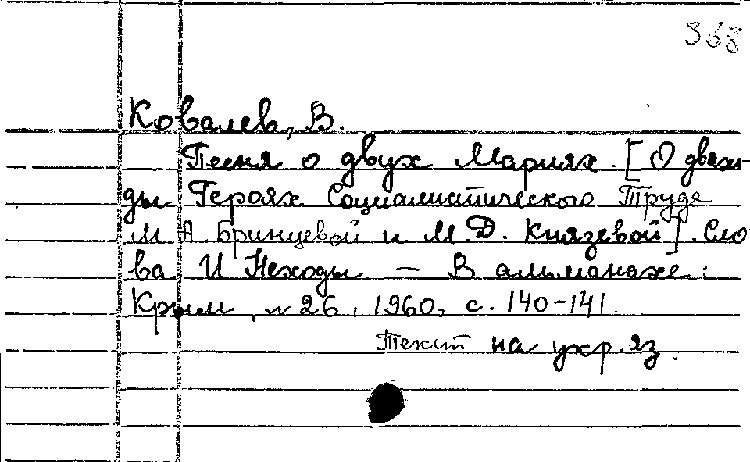 368
Ковалев, В.
Песня о двух Мариях. [О двяж-
ды Героях Социалистического Труда
М.А Бринцевой и М.Д. Князевой]. Сло
ва И Неходы — В альманахе:
Крым, № 26, 1960, с. 140-141
Текст на укр. яз.